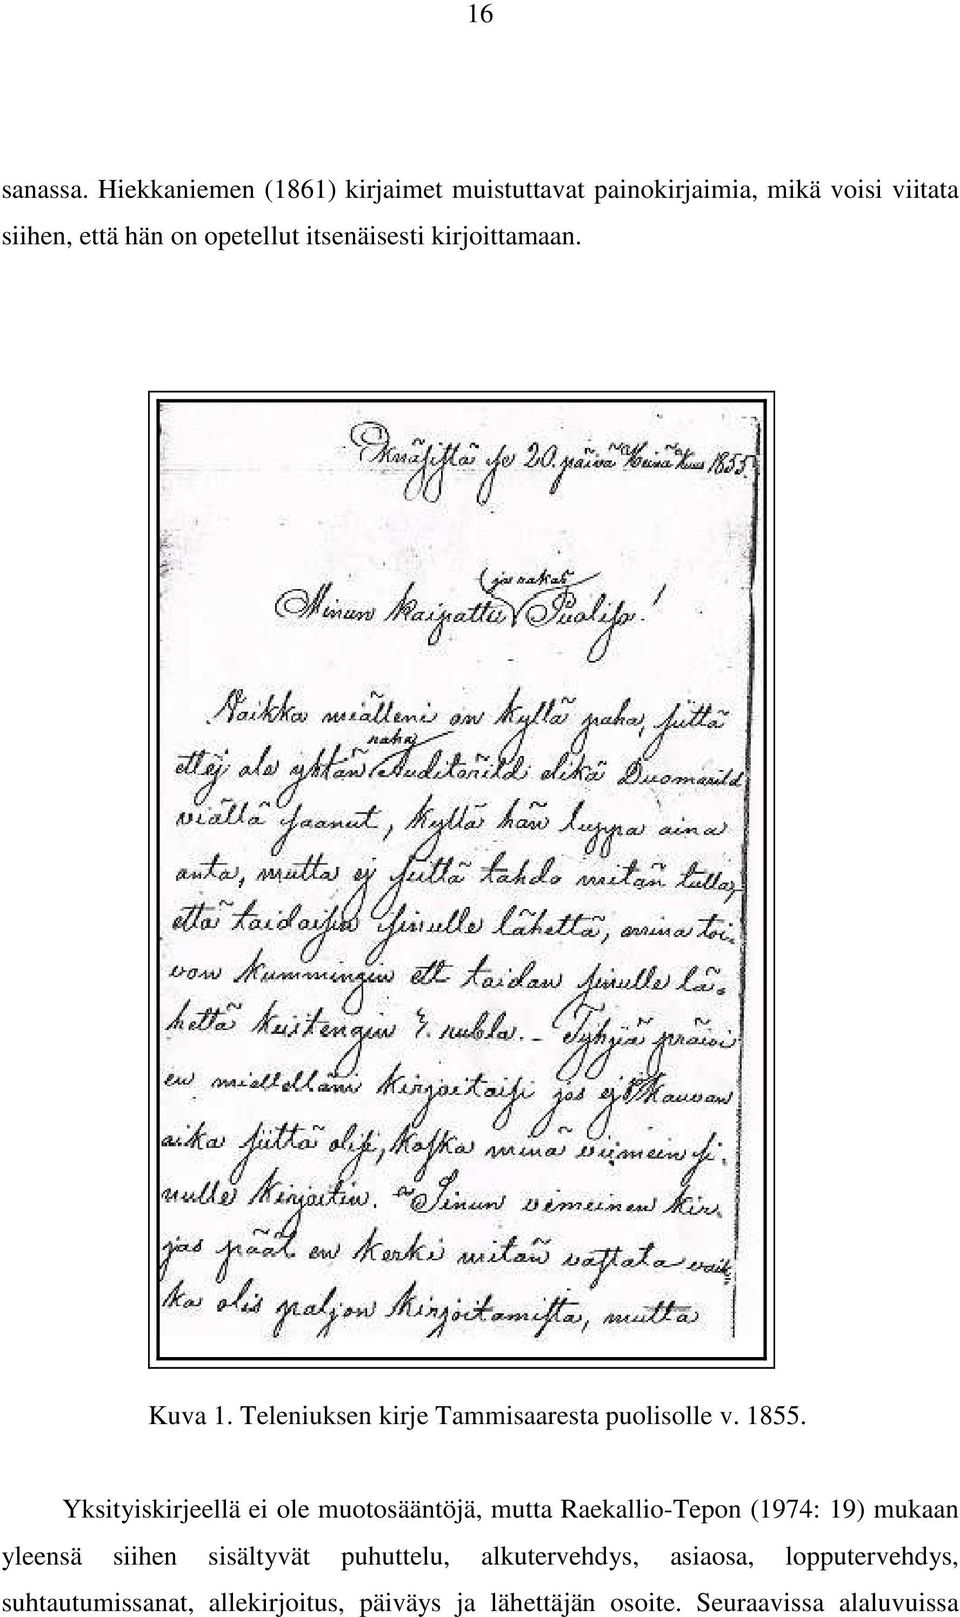 16
sanassa. Hiekkaniemen (1861) kirjaimet muistuttavat painokirjaimia, mikä voisi viitata
siihen, että hän on opetellut itsenäisesti kirjoittamaan.
se 20. päivä Heinä Kuus 1855.
ja rakas
Minun kaipattu Puoliso!
Vaikka miälleni on kyllä paha, siittä
raha
ettej ale yhtän Auditörildi elikä Duomarild
viällä saanut, kyllä hän luppa aina
anta, mutta ej siittä tahdo mitän tulla,
että taidaisin sinulle lähettä, minä toi-
von kummingin ett taidan sinulle lä-
hettä kuitengin rubla. - Tyhjiä präivi
en miellelläni kirjoitaisi jos ej kauvan
aika siittä olisi, koska minä viimein si-
nulle kirjoitin. Sinun vimeinen kir-
jas päät en kerki mitän vastata vaik-
ka olis paljon kirjoitamista, mutta
Kuva 1. Teleniuksen kirje Tammisaaresta puolisolle v. 1855.
Yksityiskirjeellä ei ole muotosääntöjä, mutta Raekallio-Tepon (1974: 19) mukaan
yleensä siihen sisältyvät puhuttelu, alkutervehdys, asiaosa, lopputervehdys,
suhtautumissanat, allekirjoitus, päiväys ja lähettäjän osoite. Seuraavissa alaluvuissa